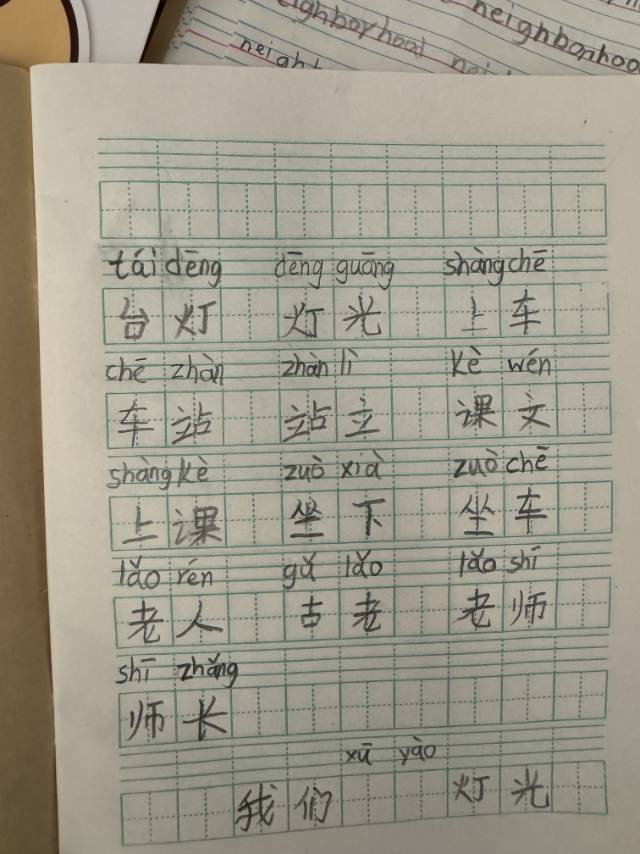 neighborhood neighborhood
neighborhood
tái dēng dēng guāng shàng chē
台灯 灯光 上车
chē zhàn zhàn lì kè wén
车站 站立 课文
shàng kè zuò xià zuò chē
上课 坐下 坐车
lǎo rén gǔ lǎo lǎo shī
老人 古老 老师
shī zhǎng
师长
xū yào
我们 灯光